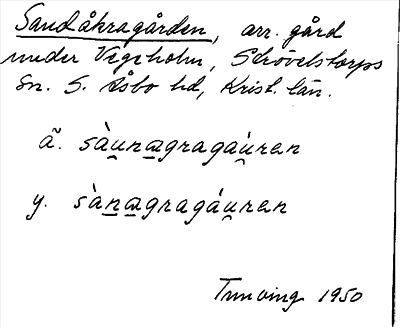 Sandåkragården, arr. gård
under Vegeholm, Strövelstorps
sn. S. Åsbo hd, Krist. län.
ã. sàu̯næ̱gragáu̯ren
y. sàṉæ̱gragáu̯ren
1950